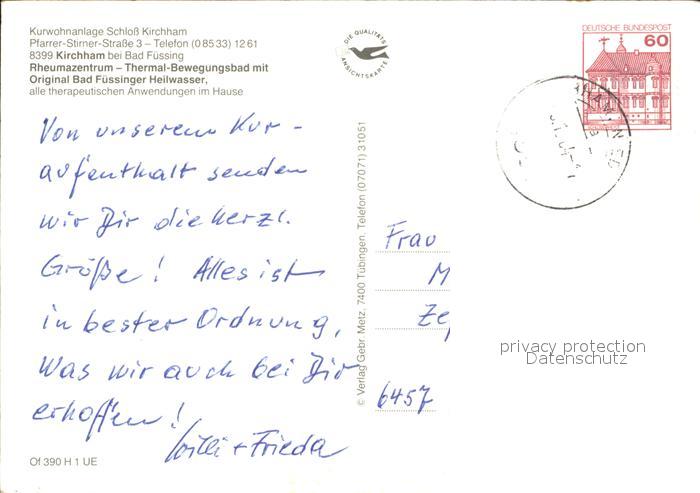 Kurwohnanlage Schloß Kirchham
Pfarrer-Stirner-Straße 3 – Telefon (0 85 33) 12 61
8399 Kirchham bei Bad Füssing
Rheumazentrum – Thermal-Bewegungsbad mit
Original Bad Füssinger Heilwasser,
alle therapeutischen Anwendungen im Hause
DIE QUALITÄTS
ANSICHTSKARTE
DEUTSCHE BUNDESPOST
60
Von unserem Kur-
aufenthalt senden
wir Dir die herzl.
Grüße! Alles ist
in bester Ordnung,
Was wir auch bei Dir
erhoffen!
Willi + Frieda
Of 390 H 1 UE
© Verlag Gebr. Metz, 7400 Tübingen, Telefon (07071) 31051
Frau
M
6457
privacy protection
Datenschutz